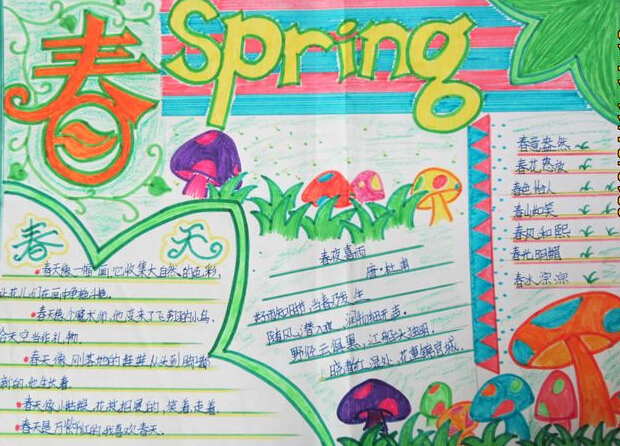 春
Spring
春天
春天像一幅画,它收集大自然的色彩,
让花儿们在画中争艳斗艳。
春天像个魔术师,他变来了飞翔的小鸟,
给天空当作礼物。
春天像刚落地的娃娃从头到脚都
新的,他生长着。
春天像小姑娘,花枝招展的,笑着,走着。
春天是万紫千红的我喜欢春天。
春夜喜雨
唐·杜甫
好雨知时节,当春乃发生
随风潜入夜,润物细无声。
野径云俱黑,江船火独明。
晓看红湿处,花重锦官城。
春意盎然
春花怒放
春色怡人
春山如笑
春风和熙
春光明媚
春水淙淙